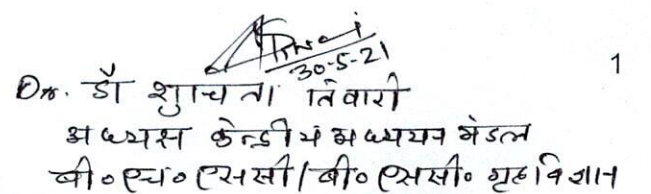 Tiwari
30-5-21
1
Dr. डॉ शुचिता तिवारी
अध्यक्ष केन्द्रीय अध्ययन मंडल
बी०एच०एससी/बी०एससी० गृह विज्ञान